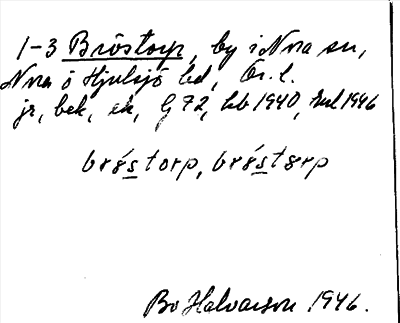 1-3 Bröstorp, by i Nora sn,
Nora o Hjulsjö bd, Ör. l.
jr, bek, ek, G 72, hb 1940, 1946
brös̲torp, brös̲tɵrp
Bo Halvarson 1946.